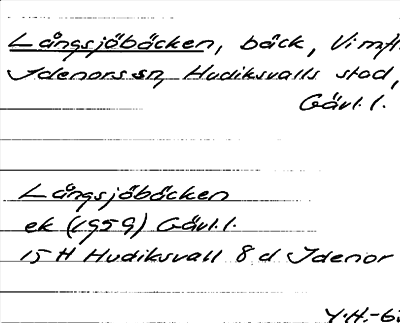 Långsjöbäcken, bäck, Vi m.fl.
Idenors sn, Hudiksvalls stad,
Gävl. l.
Långsjöbäcken
ek (1959) Gävl. l.
15 H Hudiksvall 8 d Idenor